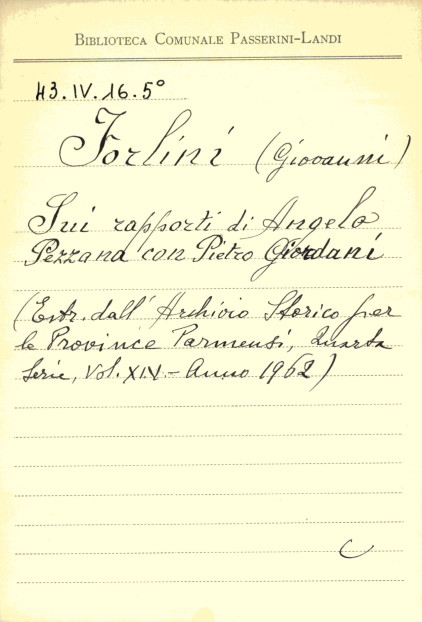 BIBLIOTECA COMUNALE PASSERINI-LANDI
43.IV.16.5°
Forlini (Giovanni)
Sui rapporti di Angelo
Pezzana con Pietro Giordani
(Estr. dall' Archivio Storico per
le Province Parmensi, Quarta
Serie, Vol. XIV - Anno 1962)
C